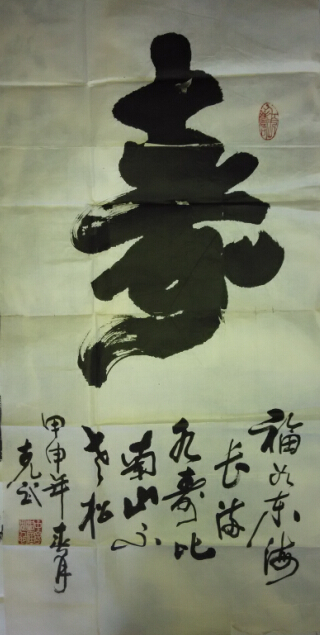 寿
福如东海
长流
水寿比
南山不
老松
甲申年春月
克武